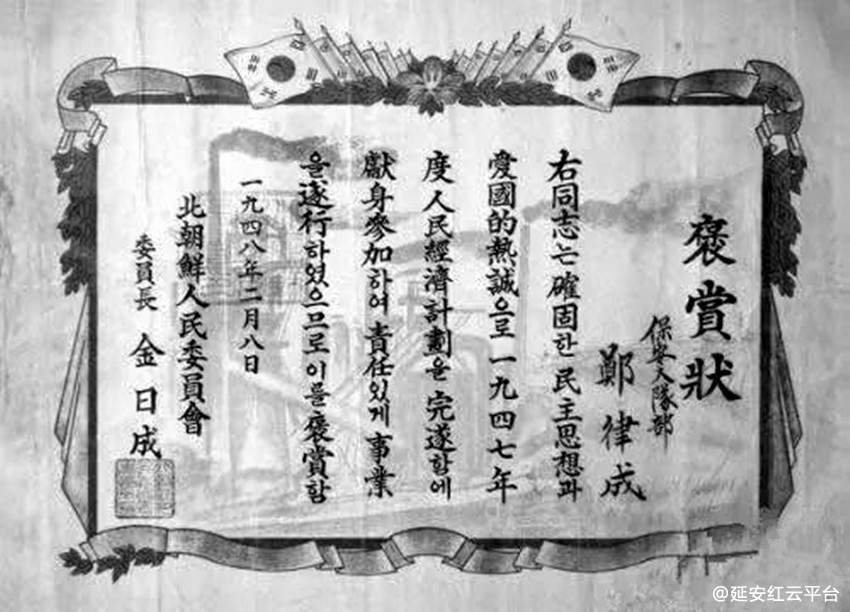 褒賞狀
保安大隊部
鄭律成
右同志는 確固한 民主思想과
愛國的熱誠으로 一九四七年
度人民經濟計劃을 完遂함에
獻身參加하여 責任있게 事業
을 遂行하였으므로 이를 褒賞함
一九四八年二月八日
北朝鮮人民委員會
委員長 金日成
@延安红云平台